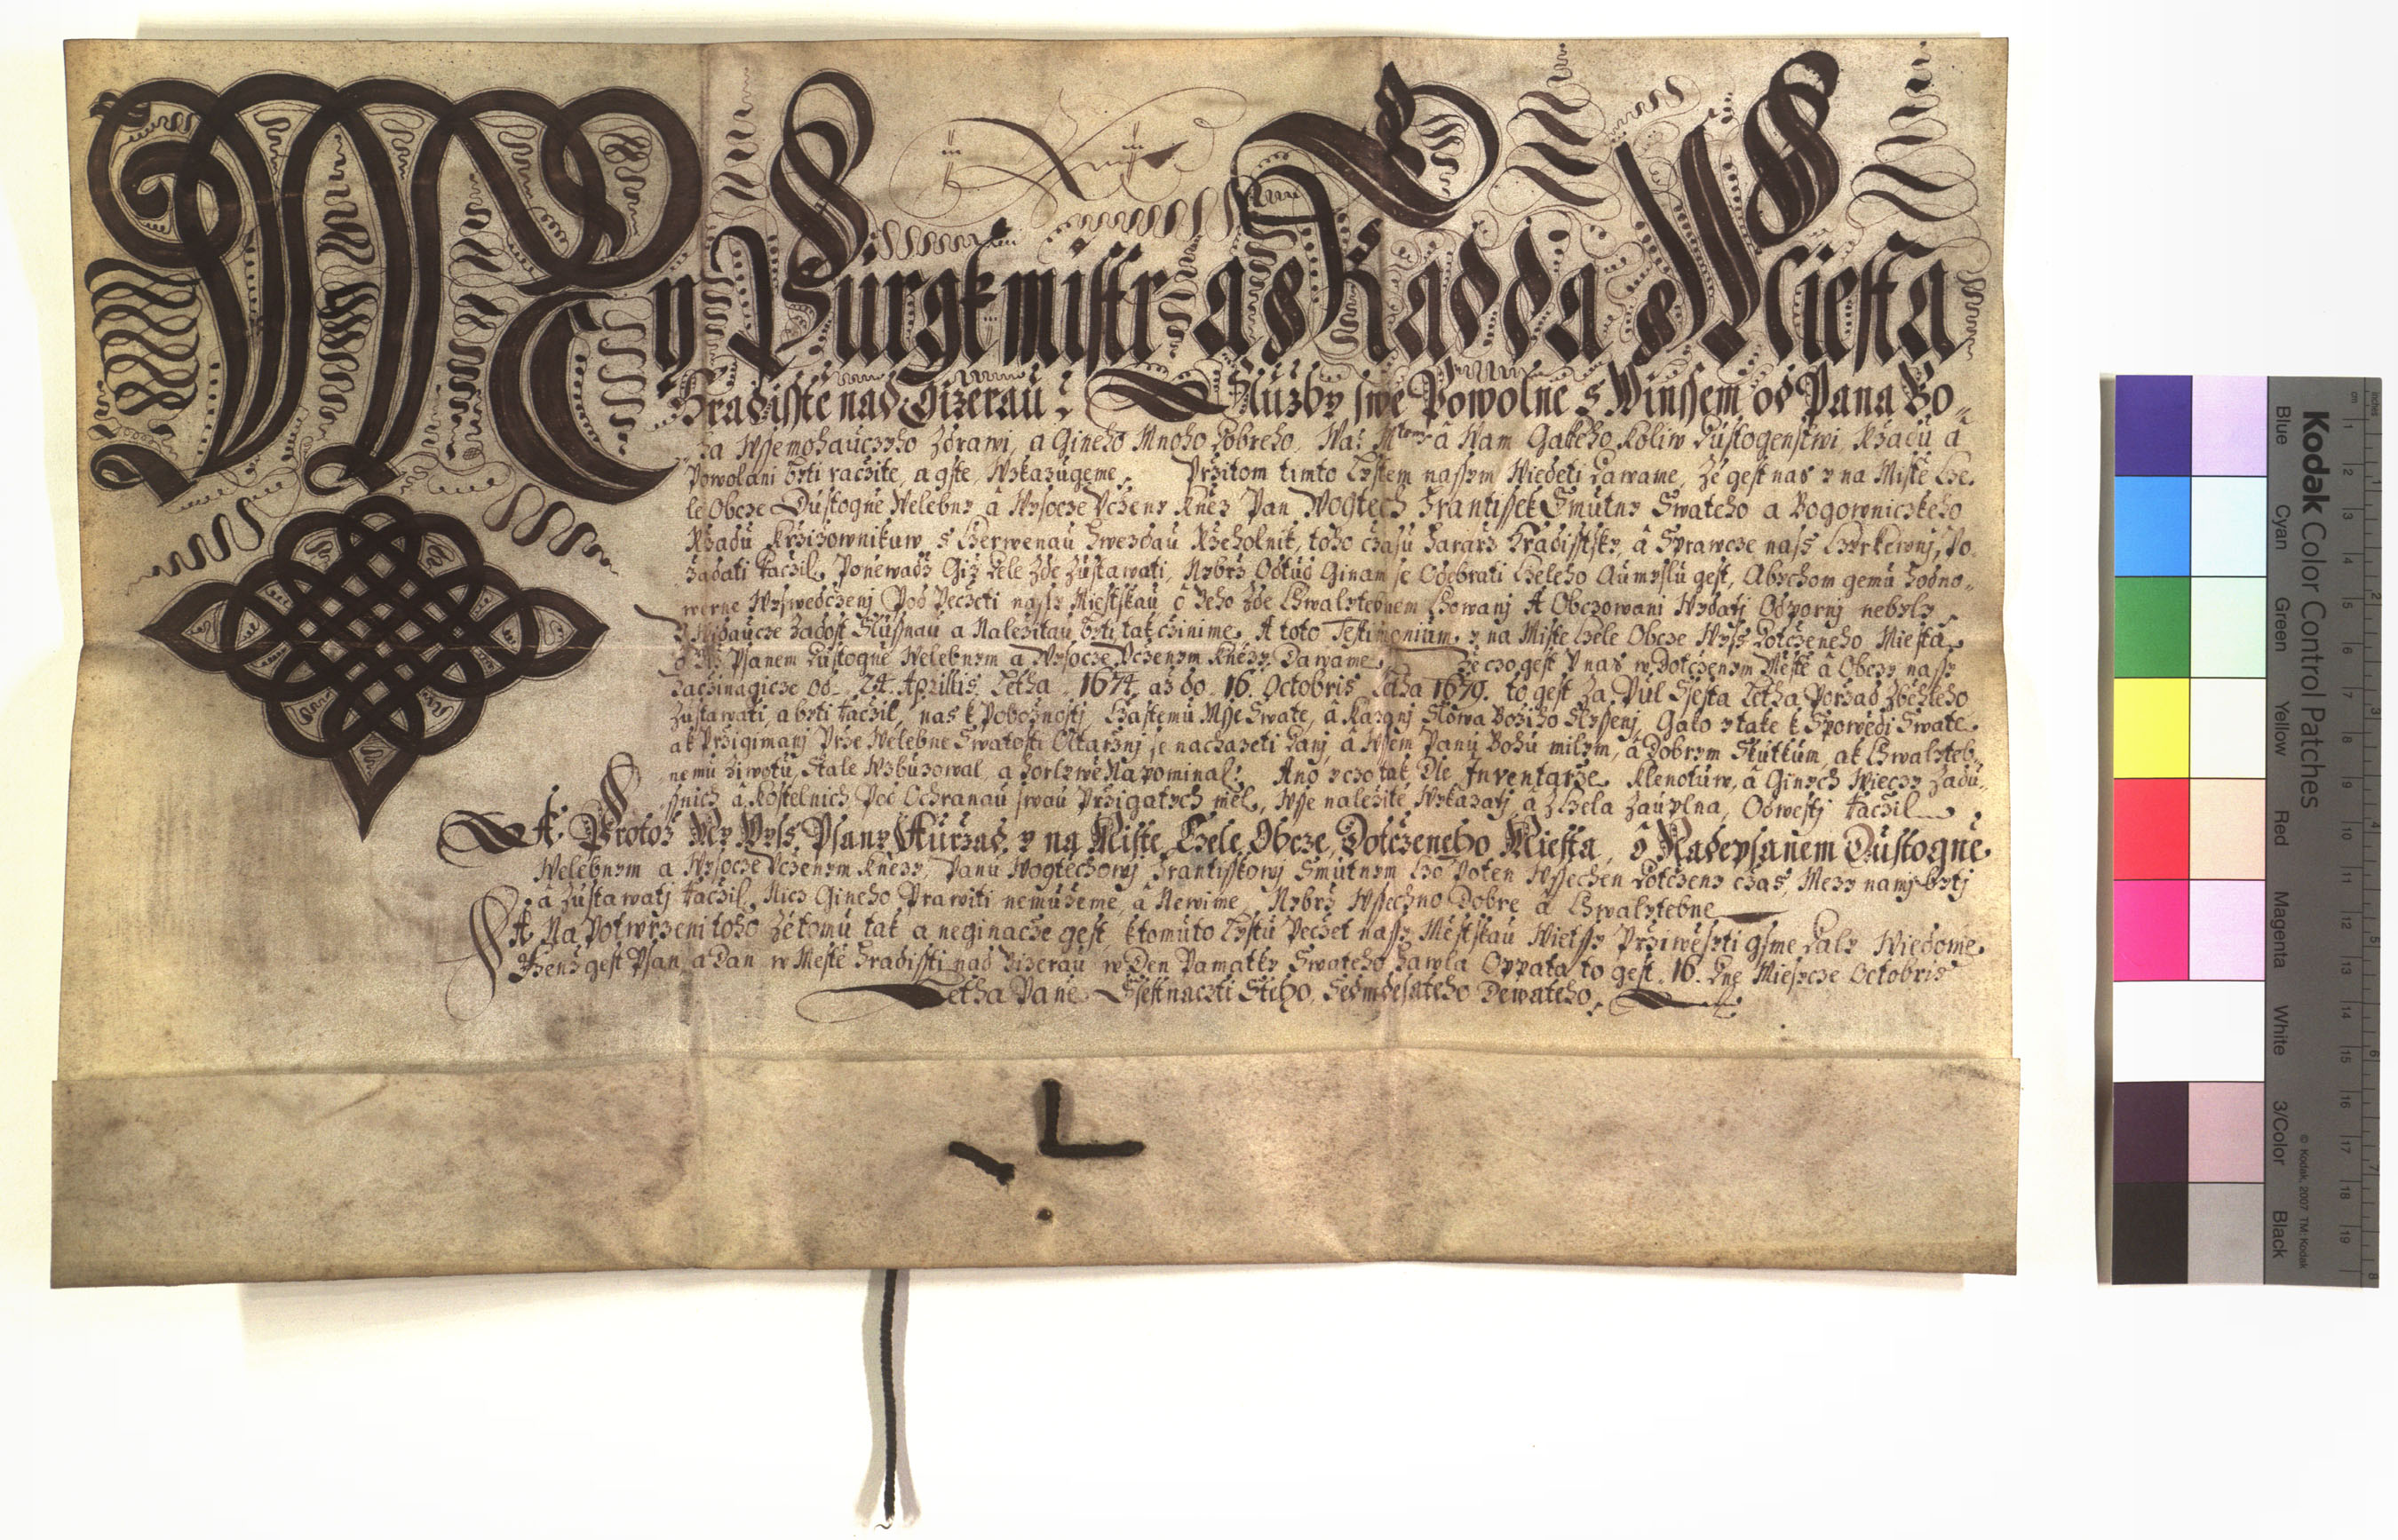 My Purgkmistr a Radda Miesta
Hradisstě nad Gizerau: Služby swé Powolné s Winssem od Pana Bo-
ha Wssemohauczyho Zdrawi, a Gineho Mnoho Dobreho, Waż Mtem â Wam Gakeho Koliw Dustogenstwi, Rżadu â
Powolani byti raczite, a gste, Wzkazugeme. Przitom timto Lystem nassym Wiedeti dawame, Zé gest nas y na Mistě Cze-
le Obcze Dustogně Welebny â Wysocze Vczeny kněz Pan Wogtěch Frantissek Smutny Swateho a Bogowniczkeho
Rżadu Krżiżownikuw s Czerwenau Hwezdau Rżeholnik, toho czasu Fararż Hradistsky, â Sprawcze nass Czyrkewnj, Po-
żadati raczil, Poněwadż Giż dele zde zustawati, Nybrż Odtud Ginam se Odebrati Czeleho Aumyslu gest, Abychom gemu hodno-
werne Wyswedczenj Pod Peczeti nassy Miestskau o geho zde Chwalytebnem Chowanj A Obczowani Wydati Odpornj nebyly
Widaucze żadost Slussnau a Należitau byti, tak czinime, A toto Testimonium y na Miste Czele Obcze Wyss dotczeneho Miesta
Psanem Dustogně Welebnym a Wysocze Vczenym knězy Dawame, Że czo gest V nas w Dotczenym Mestě â Obczy nassy
Zaczinagicze od 24. Aprillis Letha 1674 aż do 16. Octobris Letha 1679. to gest za Pul Ssesta Letha Porżad Zběhleho
zustawati, a byti raczil, nas k Pobożnosti, Czastemu Msse Swate, â Kazgnj Slowa Bożiho Slyssenj, Gako y take k Spowědi Swate
ak Przigimanj Prze Welebne Swatosti Oltarżnj se nachazeti danj, â Wssem Panu Bohu milym, â Dobrym Skutkum, ak Chwalyteb-
nemu żiwotu, Stale Wzbuzowal, a horlywě Napominal: Ano y czo tak Dle Inventarże Klenotuw, â Ginych Wieczy Zadu-
ssnich â Kostelnich Pod Ochranau swau Przigatych měl, Wsse należitě Wykazatj, â Zczela Zauplna, Odwestj raczil
A Protoż My Wyss Psany Aurżad, y na Mistě Czele Obcze Dotczeneho Miesta, o Nadepsanem Dustogně
Welebnym a Wysocze Vczenym knězy, Panu Wogtěchowj Frantisskowj Smutnym Czo Poten Wssechen dotczeny czas, Mezy namj bytj
â Zustawatj raczil, Nicz Gineho Prawiti nemużeme, â Newime, Nybrż Wssechno Dobre â Chwalytebne
A Na Potwrzeni toho Żě tomu tak a neginacze gest, k tomuto Lystu Peczet nassy Městskau Wietssy Prziwěsyti gsme daly Wiědomě
Genż gest Psan a Dan w Mestě Hradissti nad Gizerau w Den Pamatky Swateho Hawla Oppata to gest 16. Dne Miesycze Octobris
Letha Paně Ssestnaczti Steho, Sedmdesateho Dewateho.
Kodak Color Control Patches
Blue Cyan Green Yellow Red Magenta White 3/Color Black
© Kodak, 2007 TM: Kodak
inches 1 2 3 4 5 6 7 8
cm 1 2 3 4 5 6 7 8 9 10 11 12 13 14 15 16 17 18 19